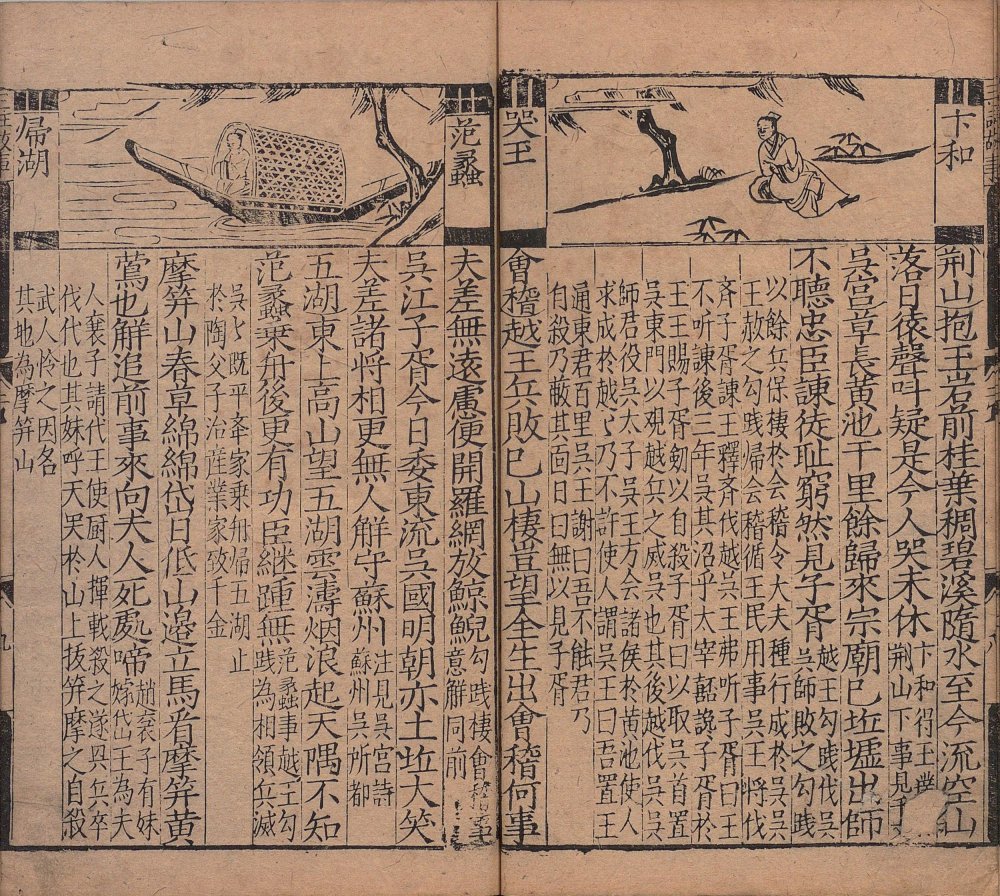 卞和
哭玉
荆山抱玉岩前桂葉稠碧溪隋水至今流空山
落日猿聲叫疑是今人哭未休
卞和得玉凿
荆山下事見于
吳宫草長黄池千里餘歸來宗廟已坵墟出師
不聽忠臣諫徒耻窮然見子胥
越王勾践伐吳
吳師敗之勾践
以餘兵保棲於会稽令大夫種行成於吳吳
王赦之勾践帰会稽循王民用事吳王將伐
齐子胥諫王釋齐伐越吳王弗听子胥曰王
不听諫後三年吳其沼乎太宰嚭谗子胥於
王王賜子胥劒以自殺子胥曰以取吳首置
吳東門以观越兵之威吳也其後越伐吳吳
師君役吳太子吳王方会諸侯於黄池使人
求成於越〻乃不許使人謂吳王曰吾置王
通東君百里吳王謝曰吾不能君乃
自殺乃蔽其面目曰無以見子胥
會稽越王兵敗已山棲豈望全生出會稽何事
范蠡
帰湖
夫差無遠慮便開羅網放鯨鯢
勾践棲會稽事
意解同前
吳江子胥今日委東流吳國明朝亦土坵大笑
夫差諸将相更無人解守蘇州
注見吳宫詩
蘇州吳所都
五湖東上高山望五湖雲濤烟浪起天隅不知
范蠡乗舟後更有功臣継踵無
范蠡事越王勾
践為相領兵滅
吳〻既平牵家乗舟帰五湖止
於陶父子治産業家致千金
摩笄山春草綿綿岱日低山邉立馬看摩笄黄
鶯也解追前事來向夫人死處啼
趙衮子有妹
嫁岱王為夫
人衮子請代王使厨人揮載殺之遂具兵卒
伐代也其妹呼天哭於山上抜笄摩之自殺
武人怜之因名
其地為摩笄山